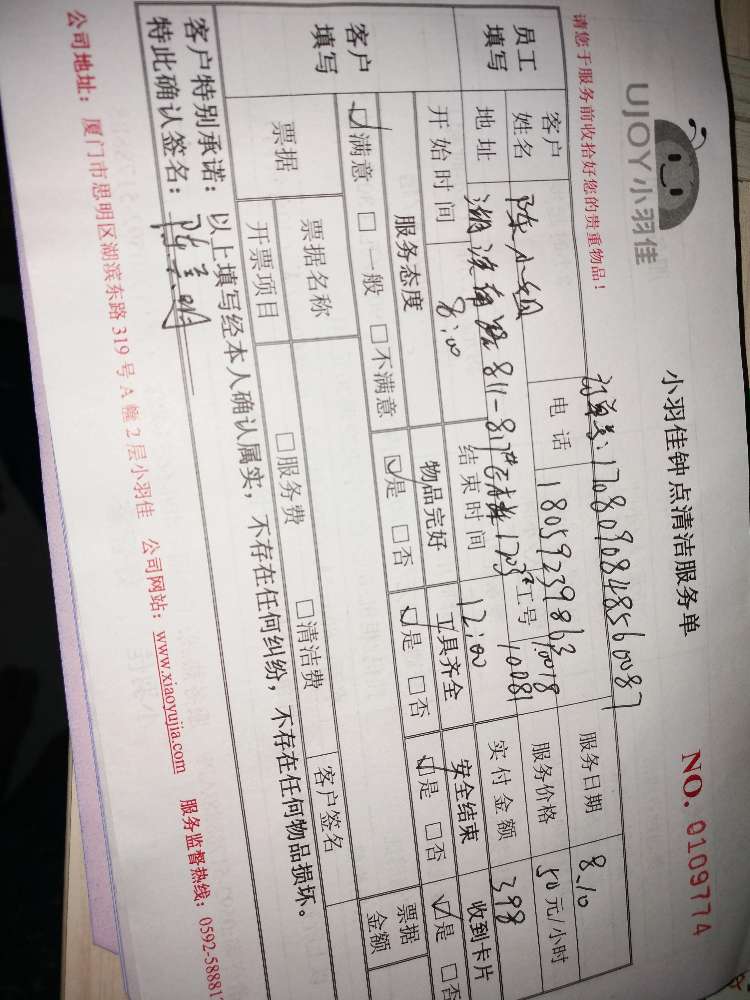 UJOY小羽佳
小羽佳钟点清洁服务单
NO. 0109774
请您于服务前收拾好您的贵重物品！
1708090848560087
员工填写 客户姓名 陈小姐 电话 18059239863 服务日期 8.10
地址 811-817# 1703 工号 10018 10081 服务价格 50元/小时
开始时间 8:00 结束时间 12:00 实付金额 398
客户填写 服务态度 物品完好 工具齐全 安全结束 收到卡片
☑满意 □一般 □不满意 ☑是 □否 ☑是 □否 ☑是 □否 ☑是 □否
票据 票据名称 客户签名 票据金额
开票项目 □服务费 □清洁费
客户特别承诺：以上填写经本人确认属实，不存在任何纠纷，不存在任何物品损坏。
特此确认签名：
公司地址：厦门市思明区湖滨东路319号A幢2层小羽佳 公司网站：www.xiaoyujia.com 服务监督热线：0592-58881